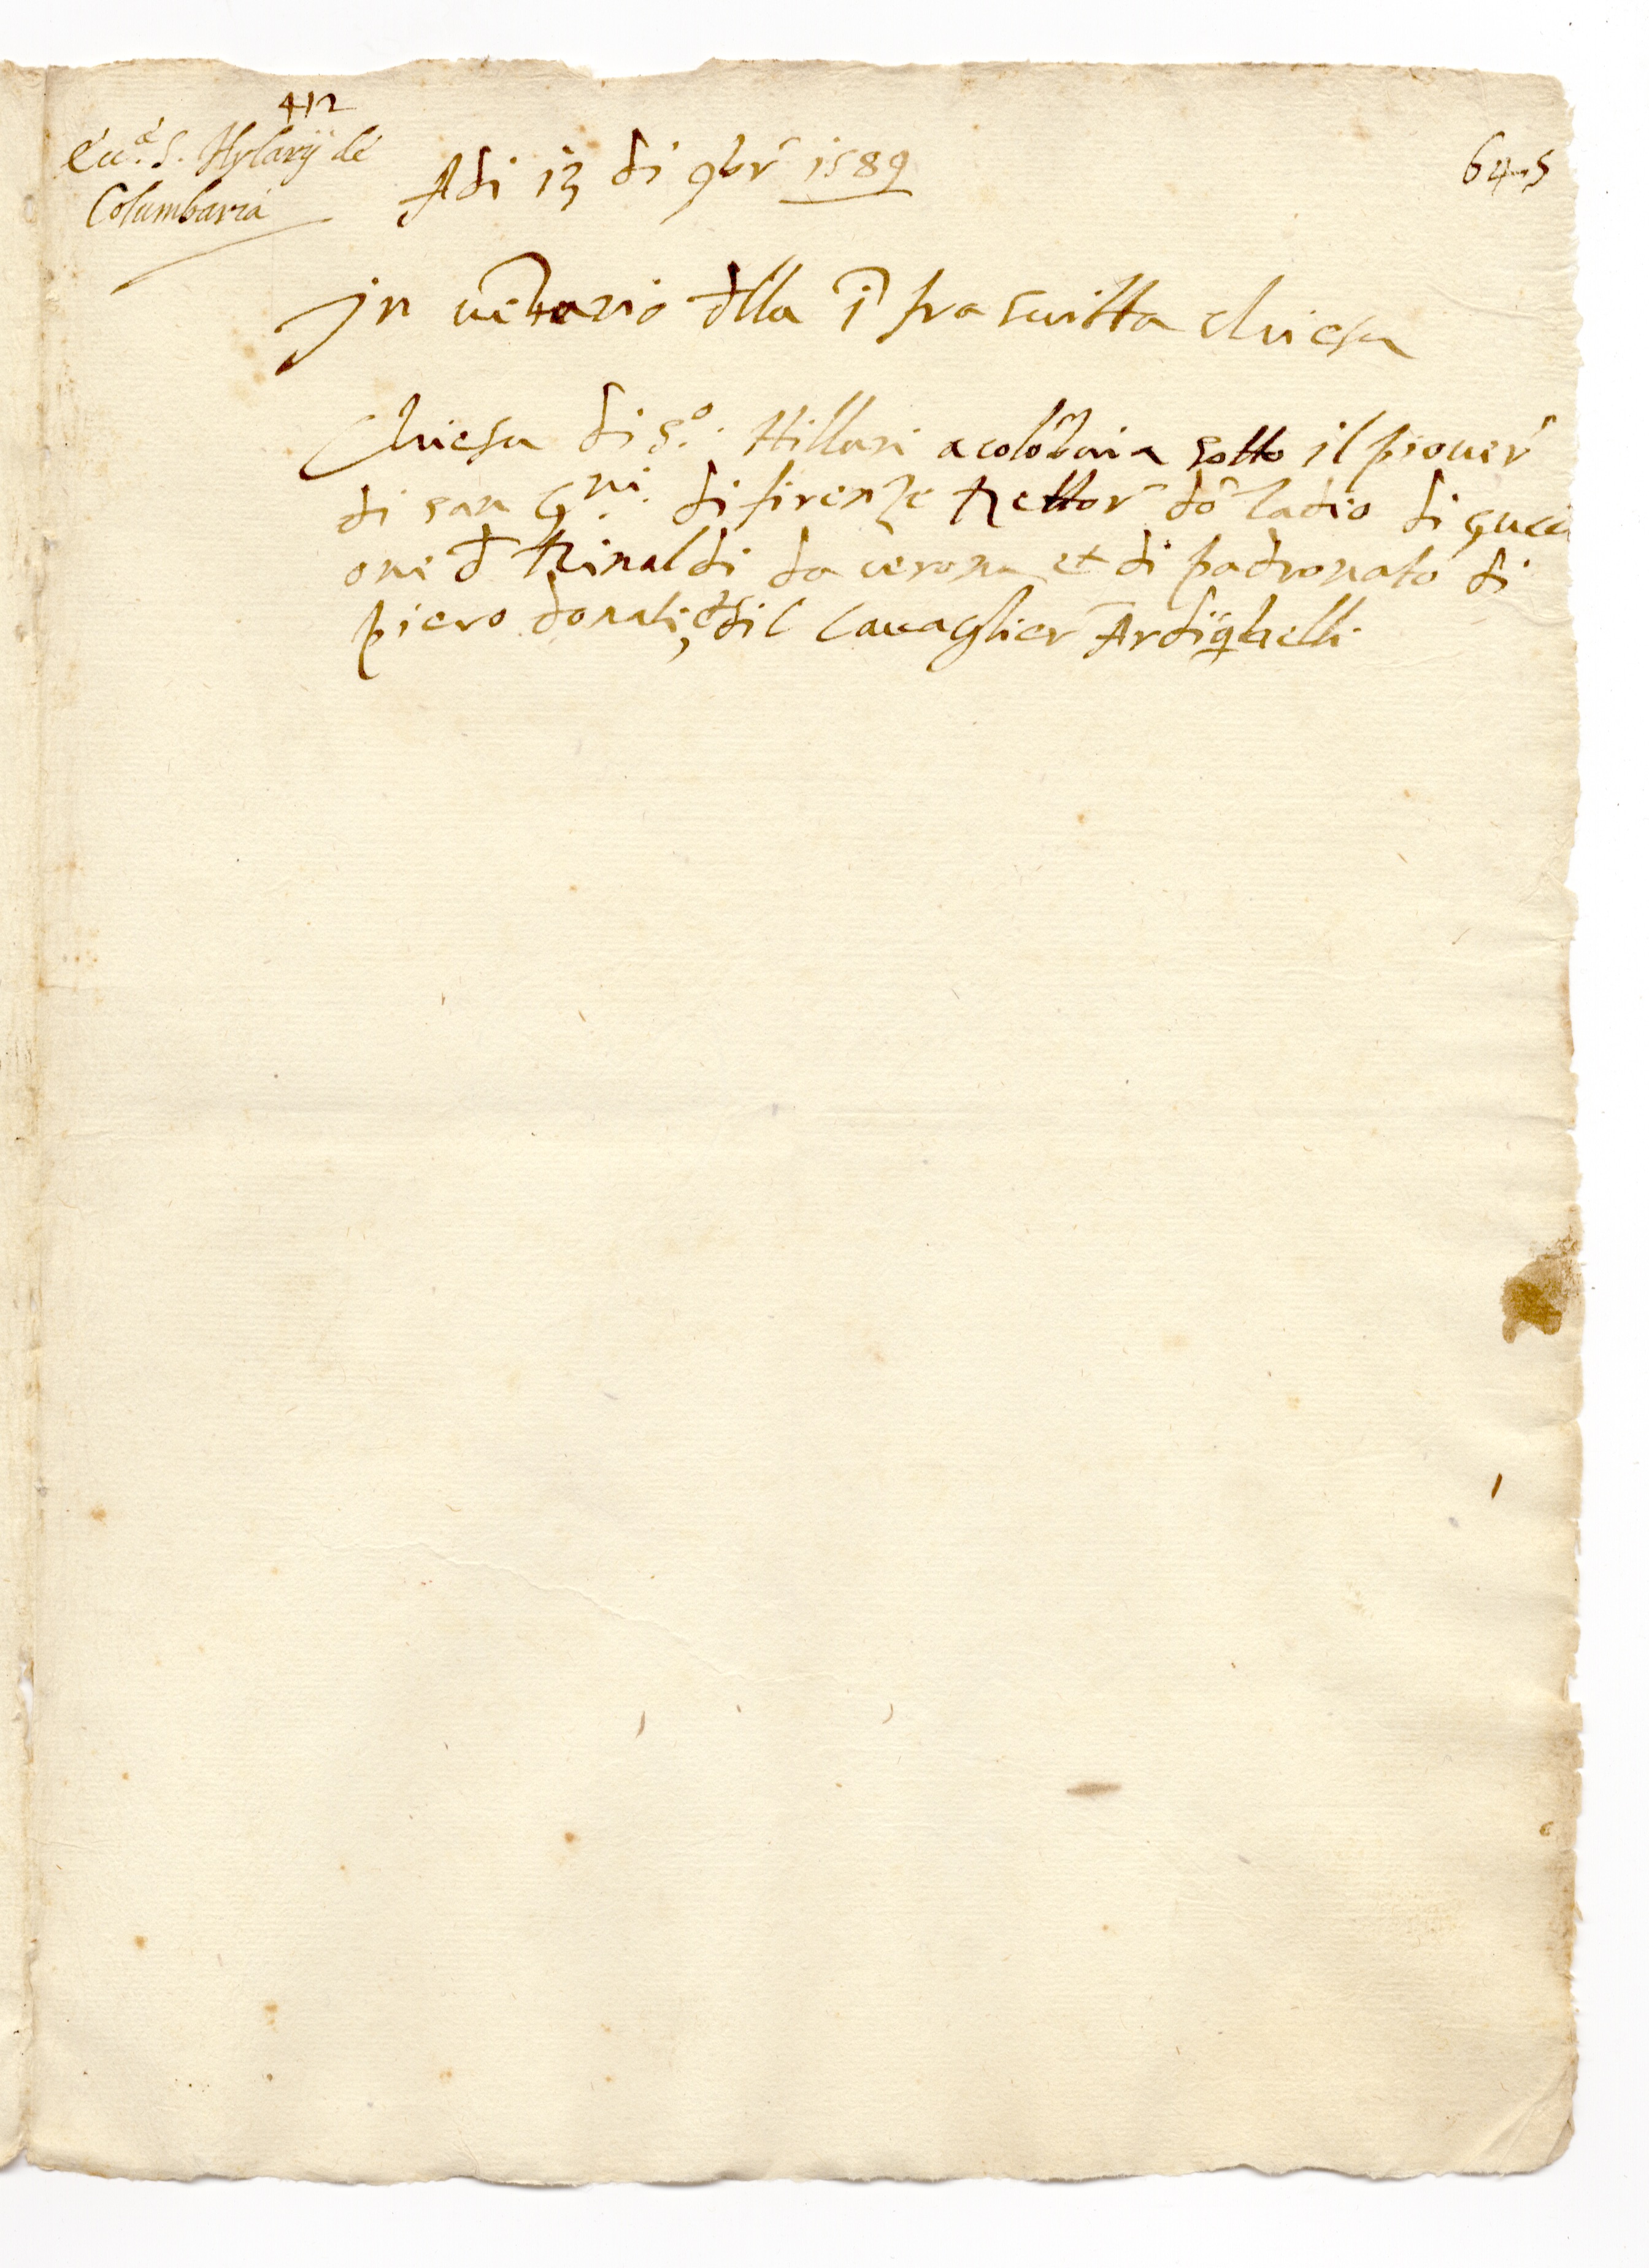 412
Ecc.ᵃ S. Hylarij de
Columbaria
Adi 13 di 9br̃ 1589
645
In uẽtario d̃lla ĩfrascritta chiesa
Chiesa di s.º Hillari a colõbaia sotto il piouer̃
di san Gni. di firenze Rettor̃ dõ ladio di gucci
oni d̃ Rinaldi da uerona et di padronato di
piero donati, et il Cauaglier Ardighelli